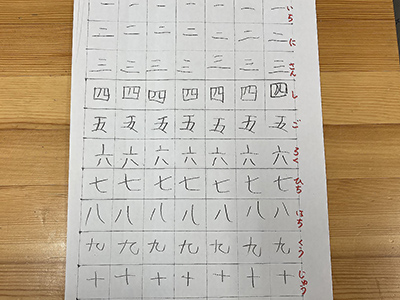 一 一 一 一 一 一 一 いち
二 二 二 二 二 二 二 に
三 三 三 三 三 三 三 さん
四 四 四 四 四 四 四 し
五 五 五 五 五 五 五 ご
六 六 六 六 六 六 六 ろく
七 七 七 七 七 七 七 ひち
八 八 八 八 八 八 八 はち
九 九 九 九 九 九 九 くう
十 十 十 十 十 十 十 じゅう